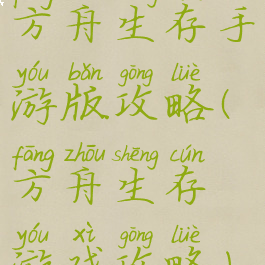 方舟生存手
yóu bǎn gōng lüè
游版攻略(
fāng zhōu shēng cún
方舟生存
yóu xì gōng lüè
游戏攻略)